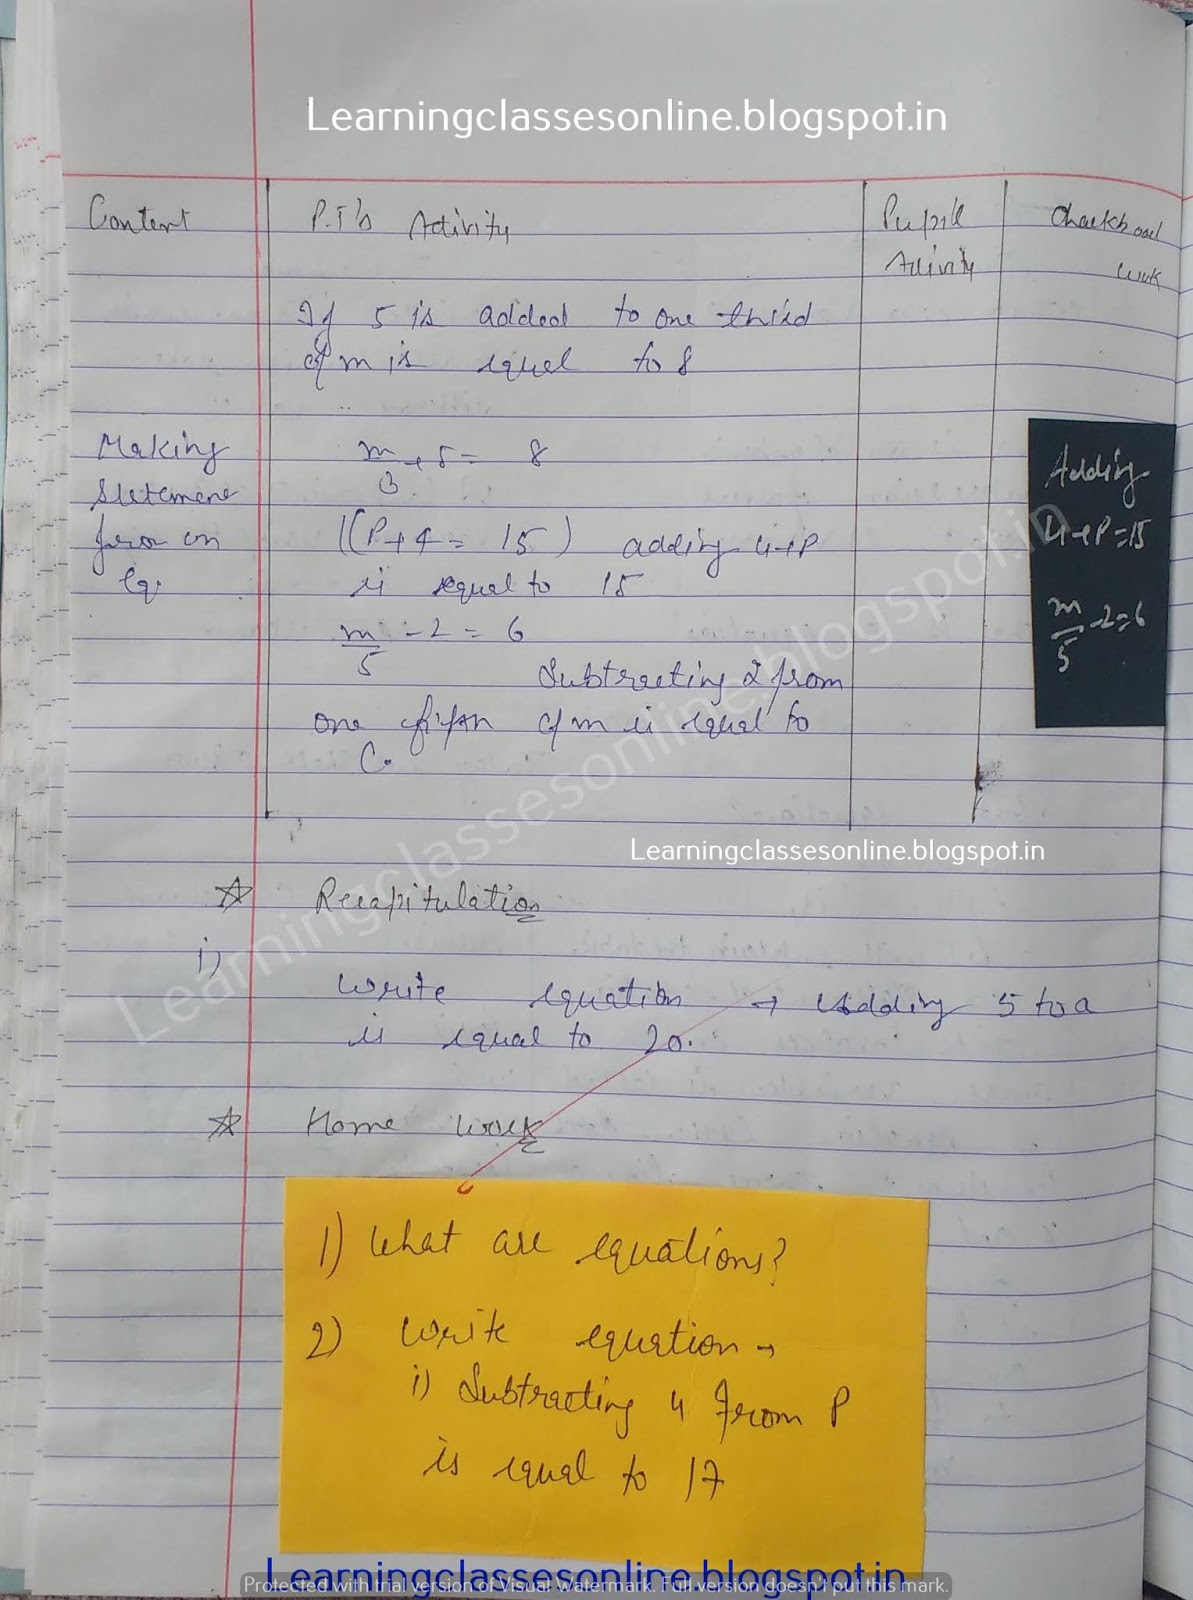 Learningclassesonline.blogspot.in
Content P.T's Activity Pupil Activity Chalkboard work
If 5 is added to one third
of m is equal to 8
Making Statement from an Eq.
m/3 + 5 = 8
((P+4 = 15) adding 4+P
is equal to 15
m/5 - 2 = 6
Subtracting 2 from
one of m is equal to
6.
Adding
4+P=15
m/5 -2=6
Learningclassesonline.blogspot.in
Learningclassesonline.blogspot.in
Recapitulation
i)
Write equation → Adding 5 to a
is equal to 20.
Home Work
1) What are equations?
2) Write equation →
i) Subtracting 4 from P
is equal to 17
Learningclassesonline.blogspot.in
Protected with trial version of Visual Watermark. Full version doesn't put this mark.